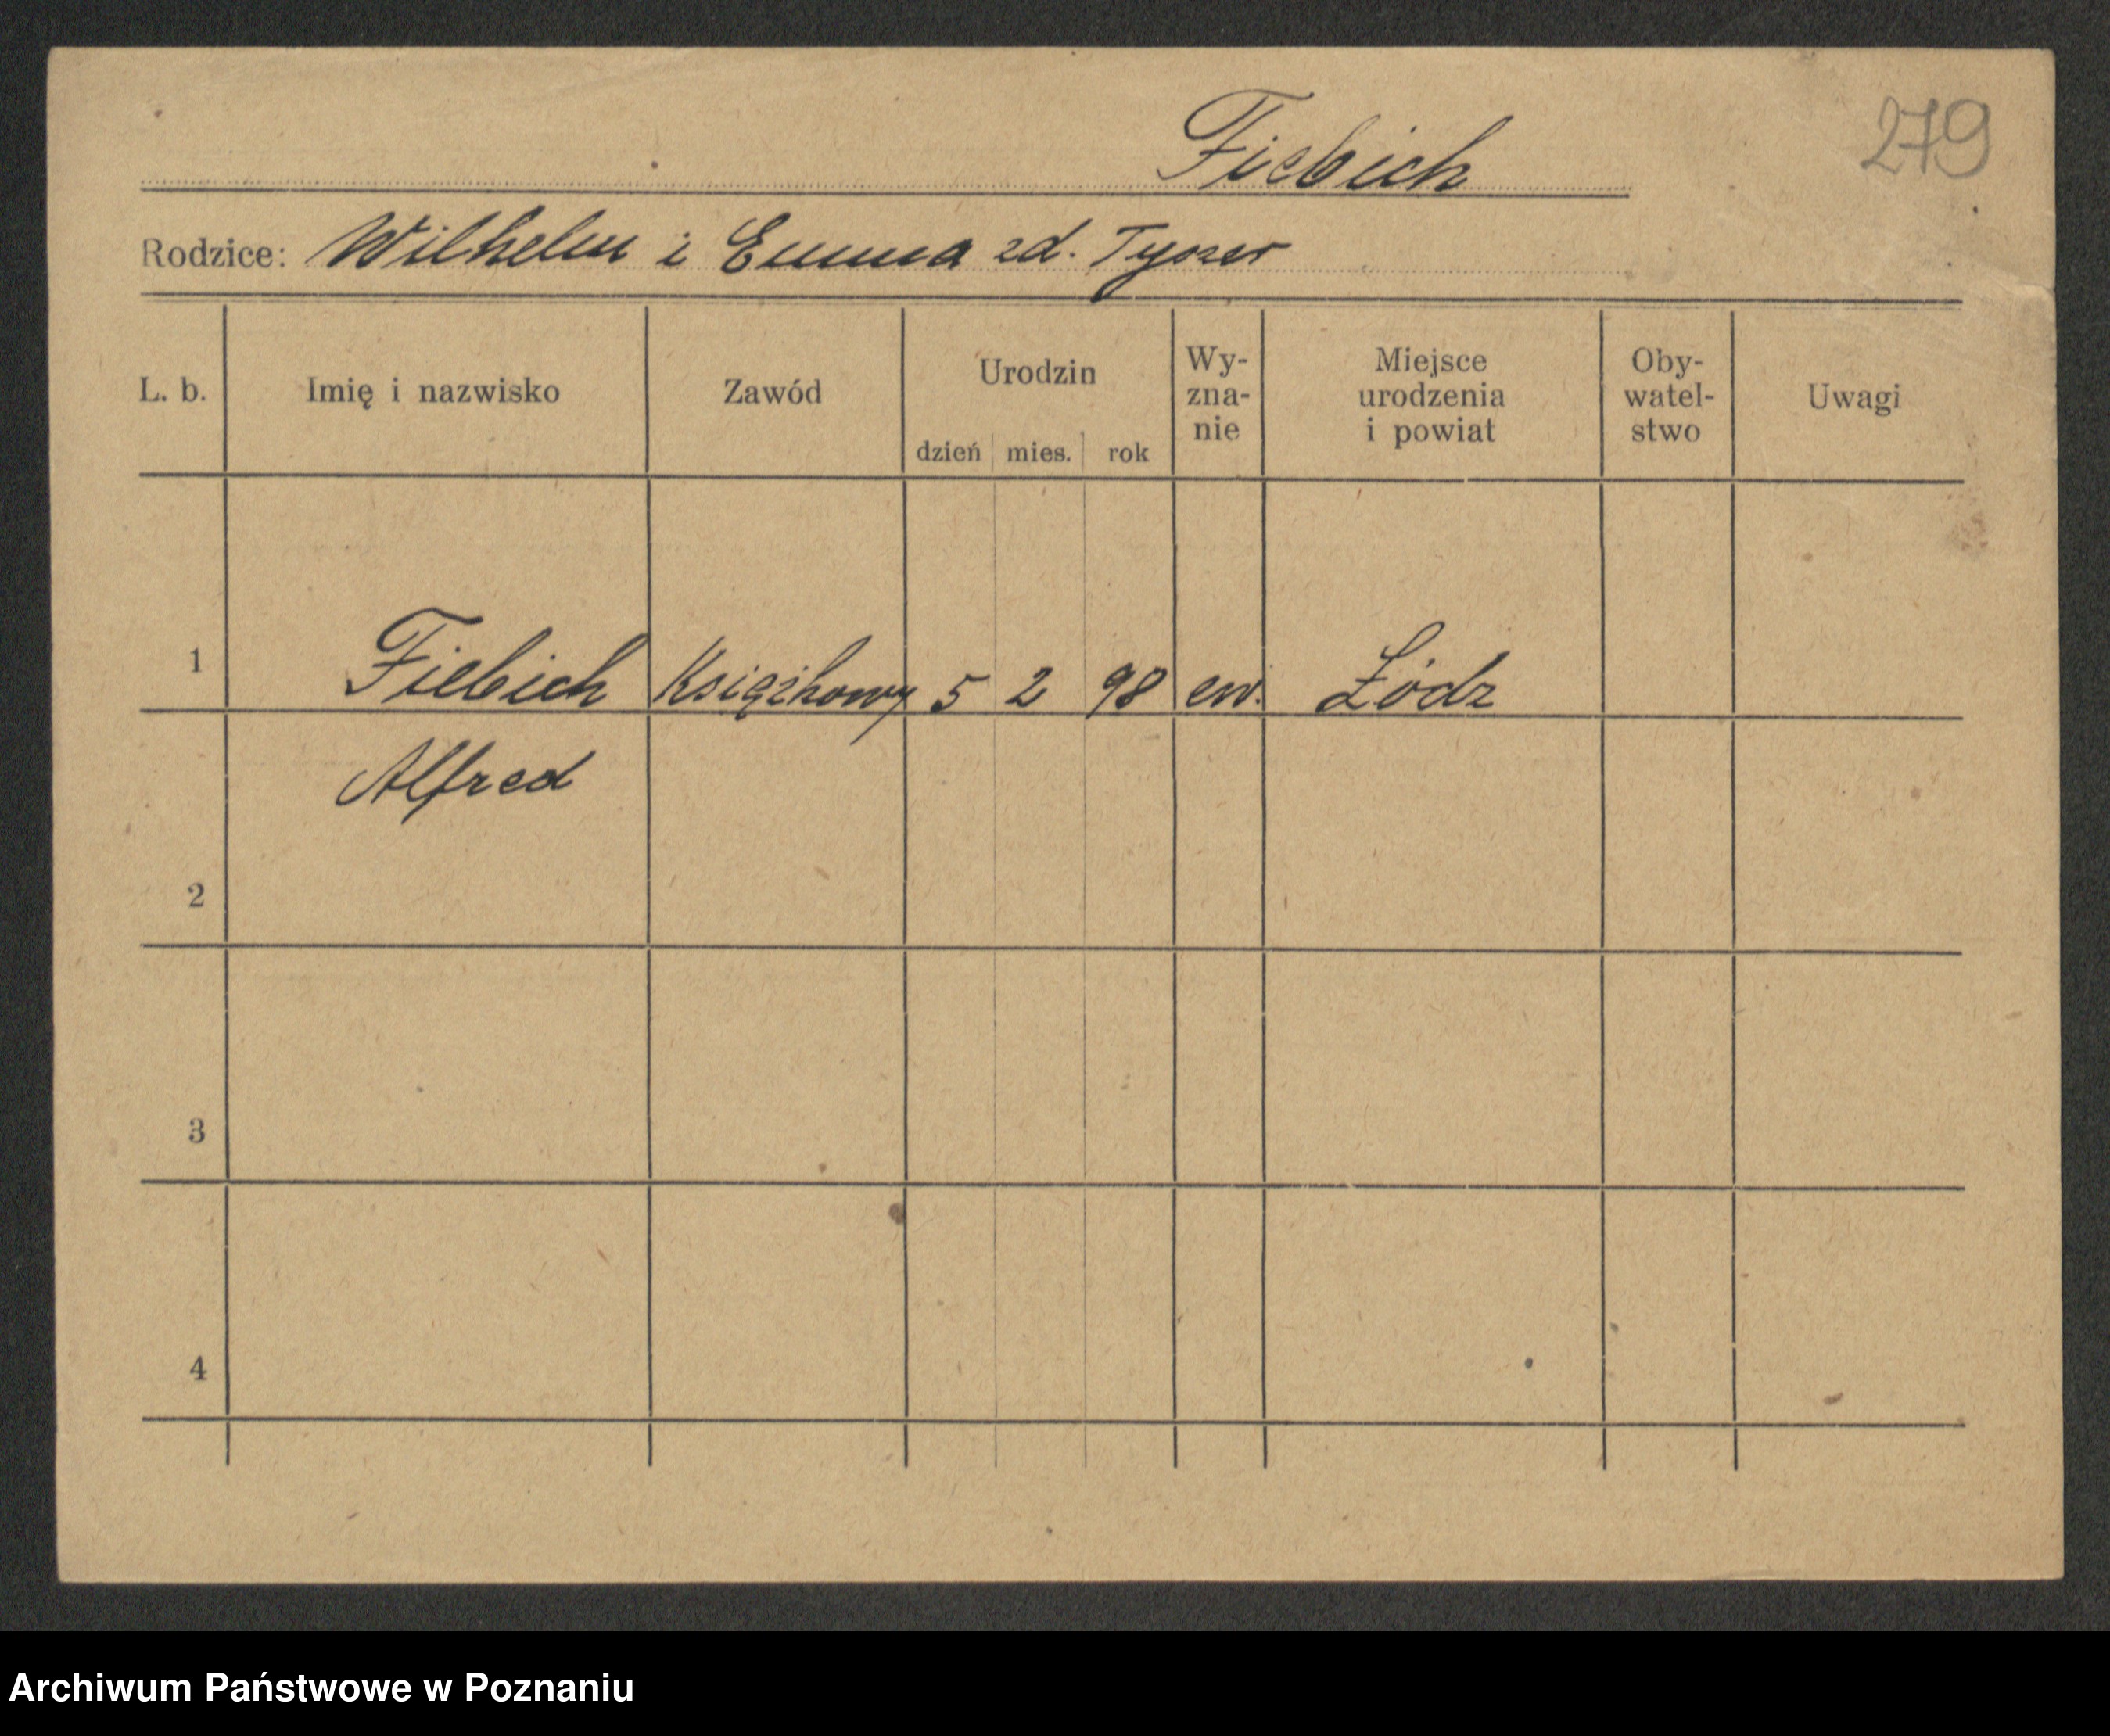 279
Fiebich
Rodzice: Wilhelm i Emma zd. Tyszer
L. b. Imię i nazwisko Zawód Urodzin dzień mies. rok Wy-zna-nie Miejsce urodzenia i powiat Oby-watel-stwo Uwagi
1 Fiebich Książkowy 5 2 98 ew. Łódz
Alfred
2
3
4
Archiwum Państwowe w Poznaniu